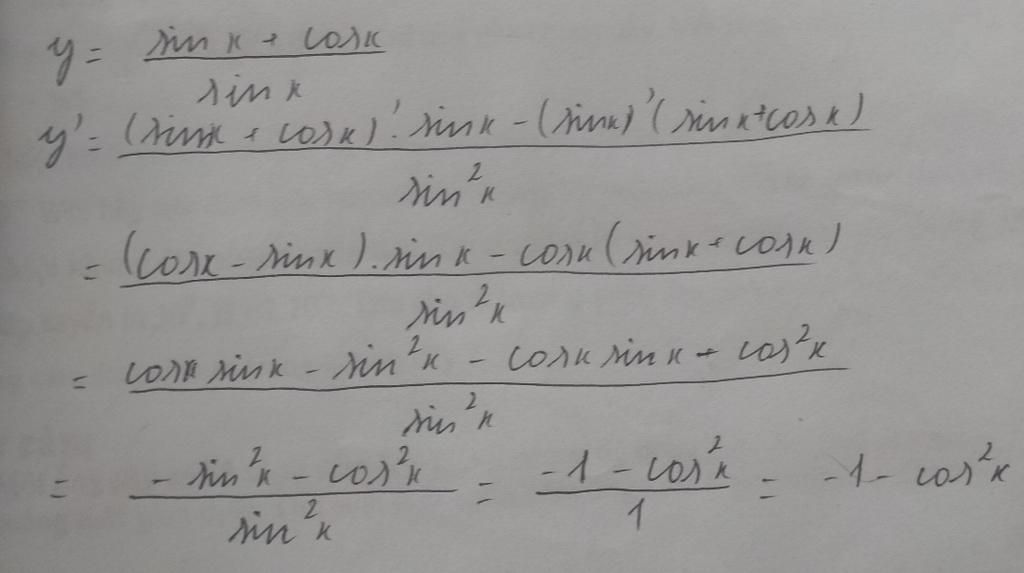 y = (sin x + cos x) / (sin x)
y' = ((sin x + cos x)' . sin x - (sin x)' (sin x + cos x)) / (sin²x)
= ((cos x - sin x) . sin x - cos x (sin x + cos x)) / (sin²x)
= (cos x sin x - sin²x - cos x sin x + cos²x) / (sin²x)
= (- sin²x - cos²x) / (sin²x) = (-1 - cos²x) / 1 = -1 - cos²x